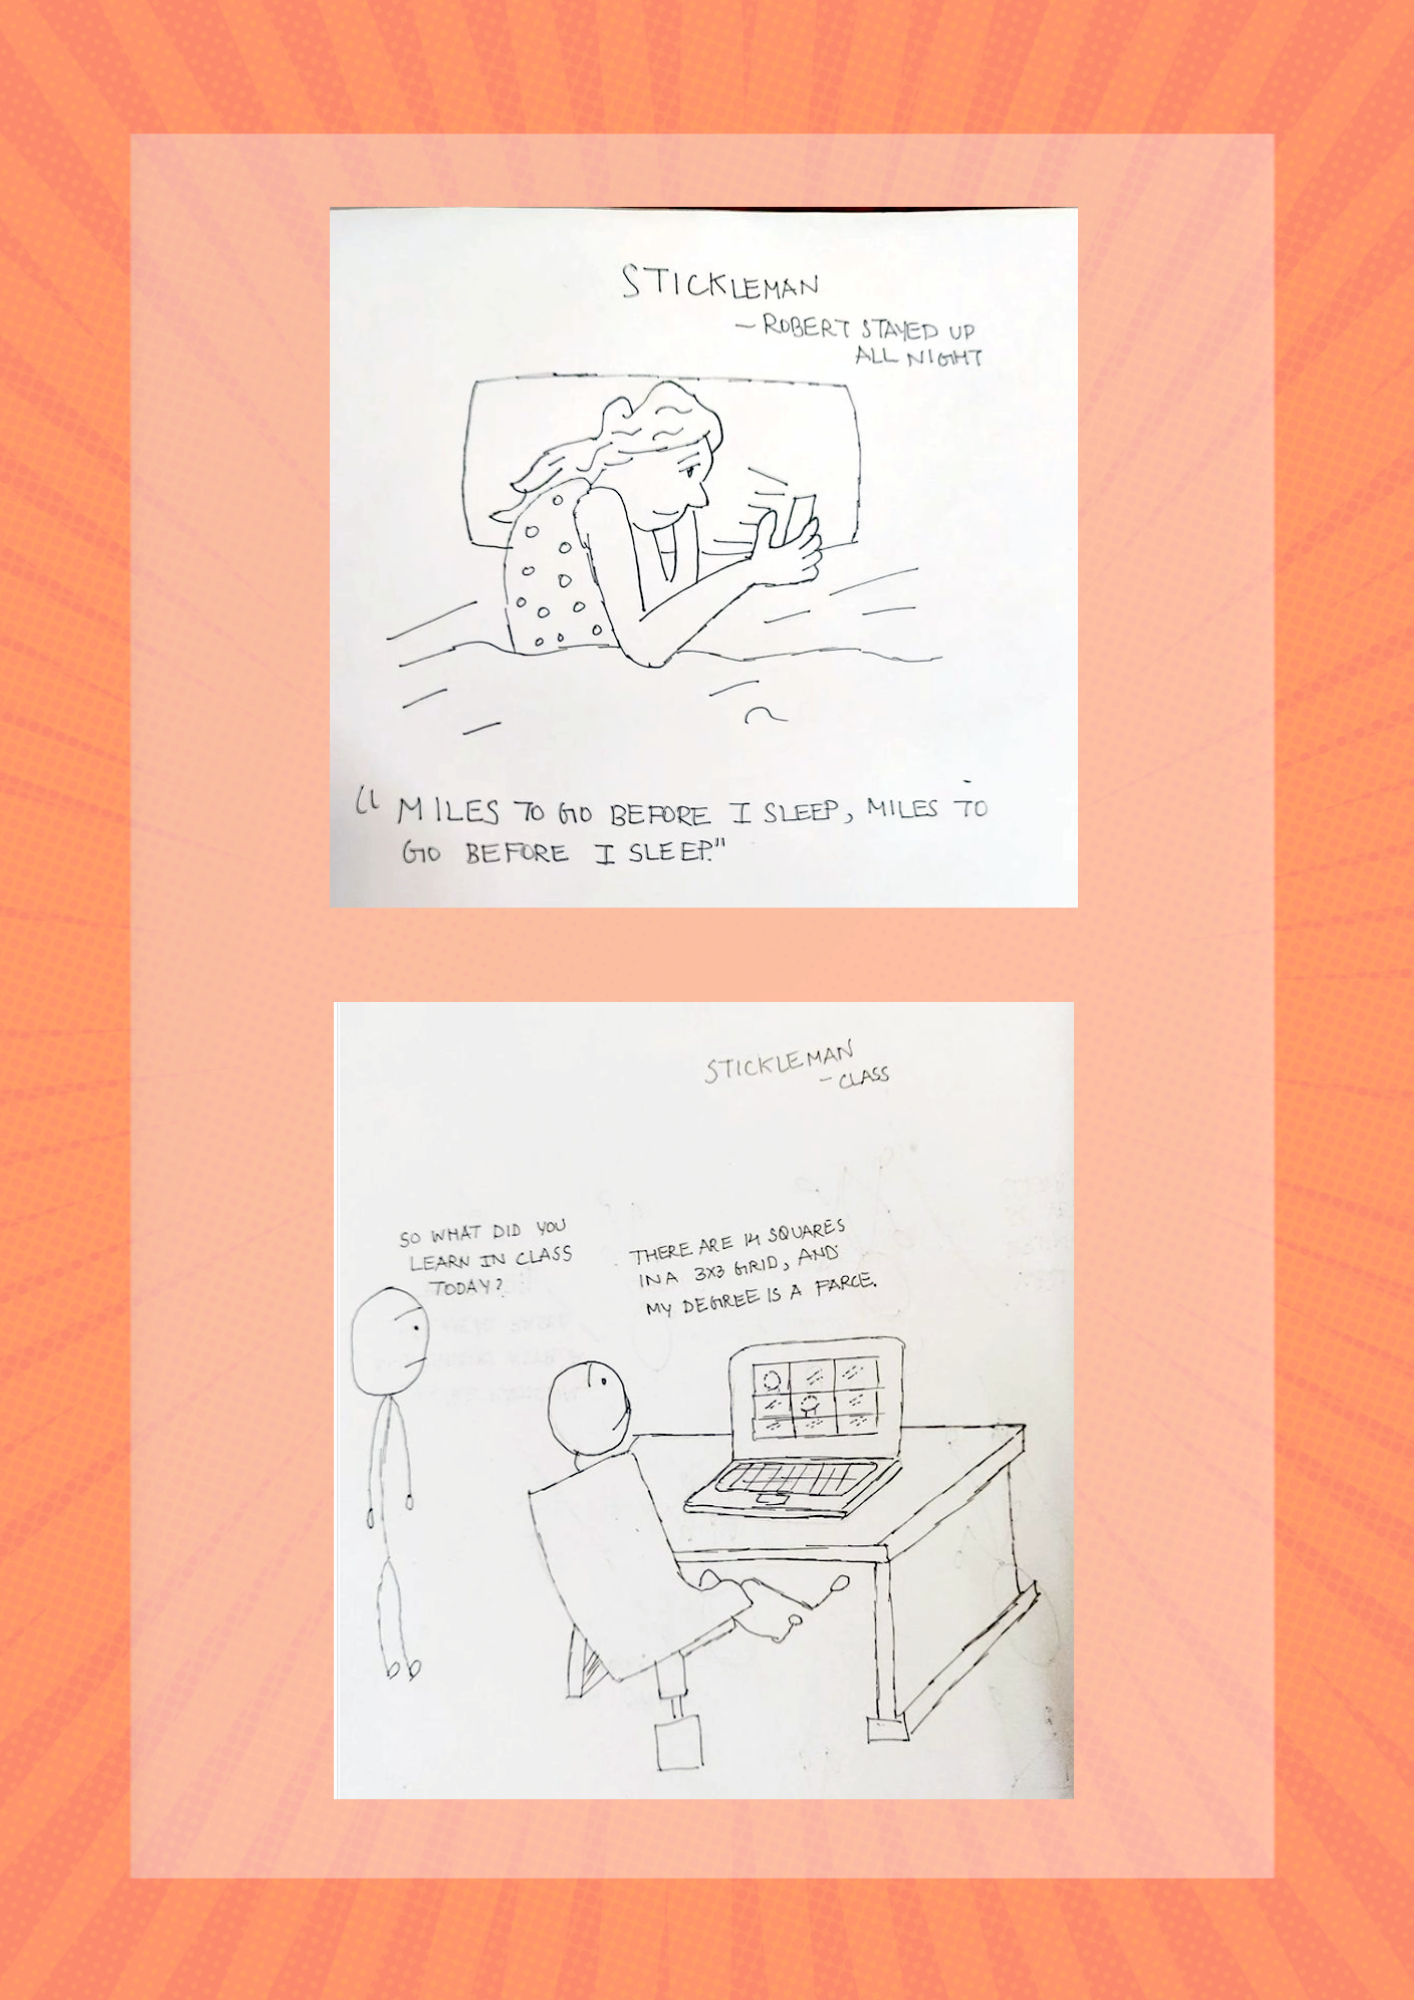 STICKLEMAN
– ROBERT STAYED UP
ALL NIGHT
“ MILES TO GO BEFORE I SLEEP, MILES TO
GO BEFORE I SLEEP."
STICKLEMAN
– CLASS
SO WHAT DID YOU
LEARN IN CLASS
TODAY?
THERE ARE 14 SQUARES
IN A 3X3 GRID, AND
MY DEGREE IS A FARCE.